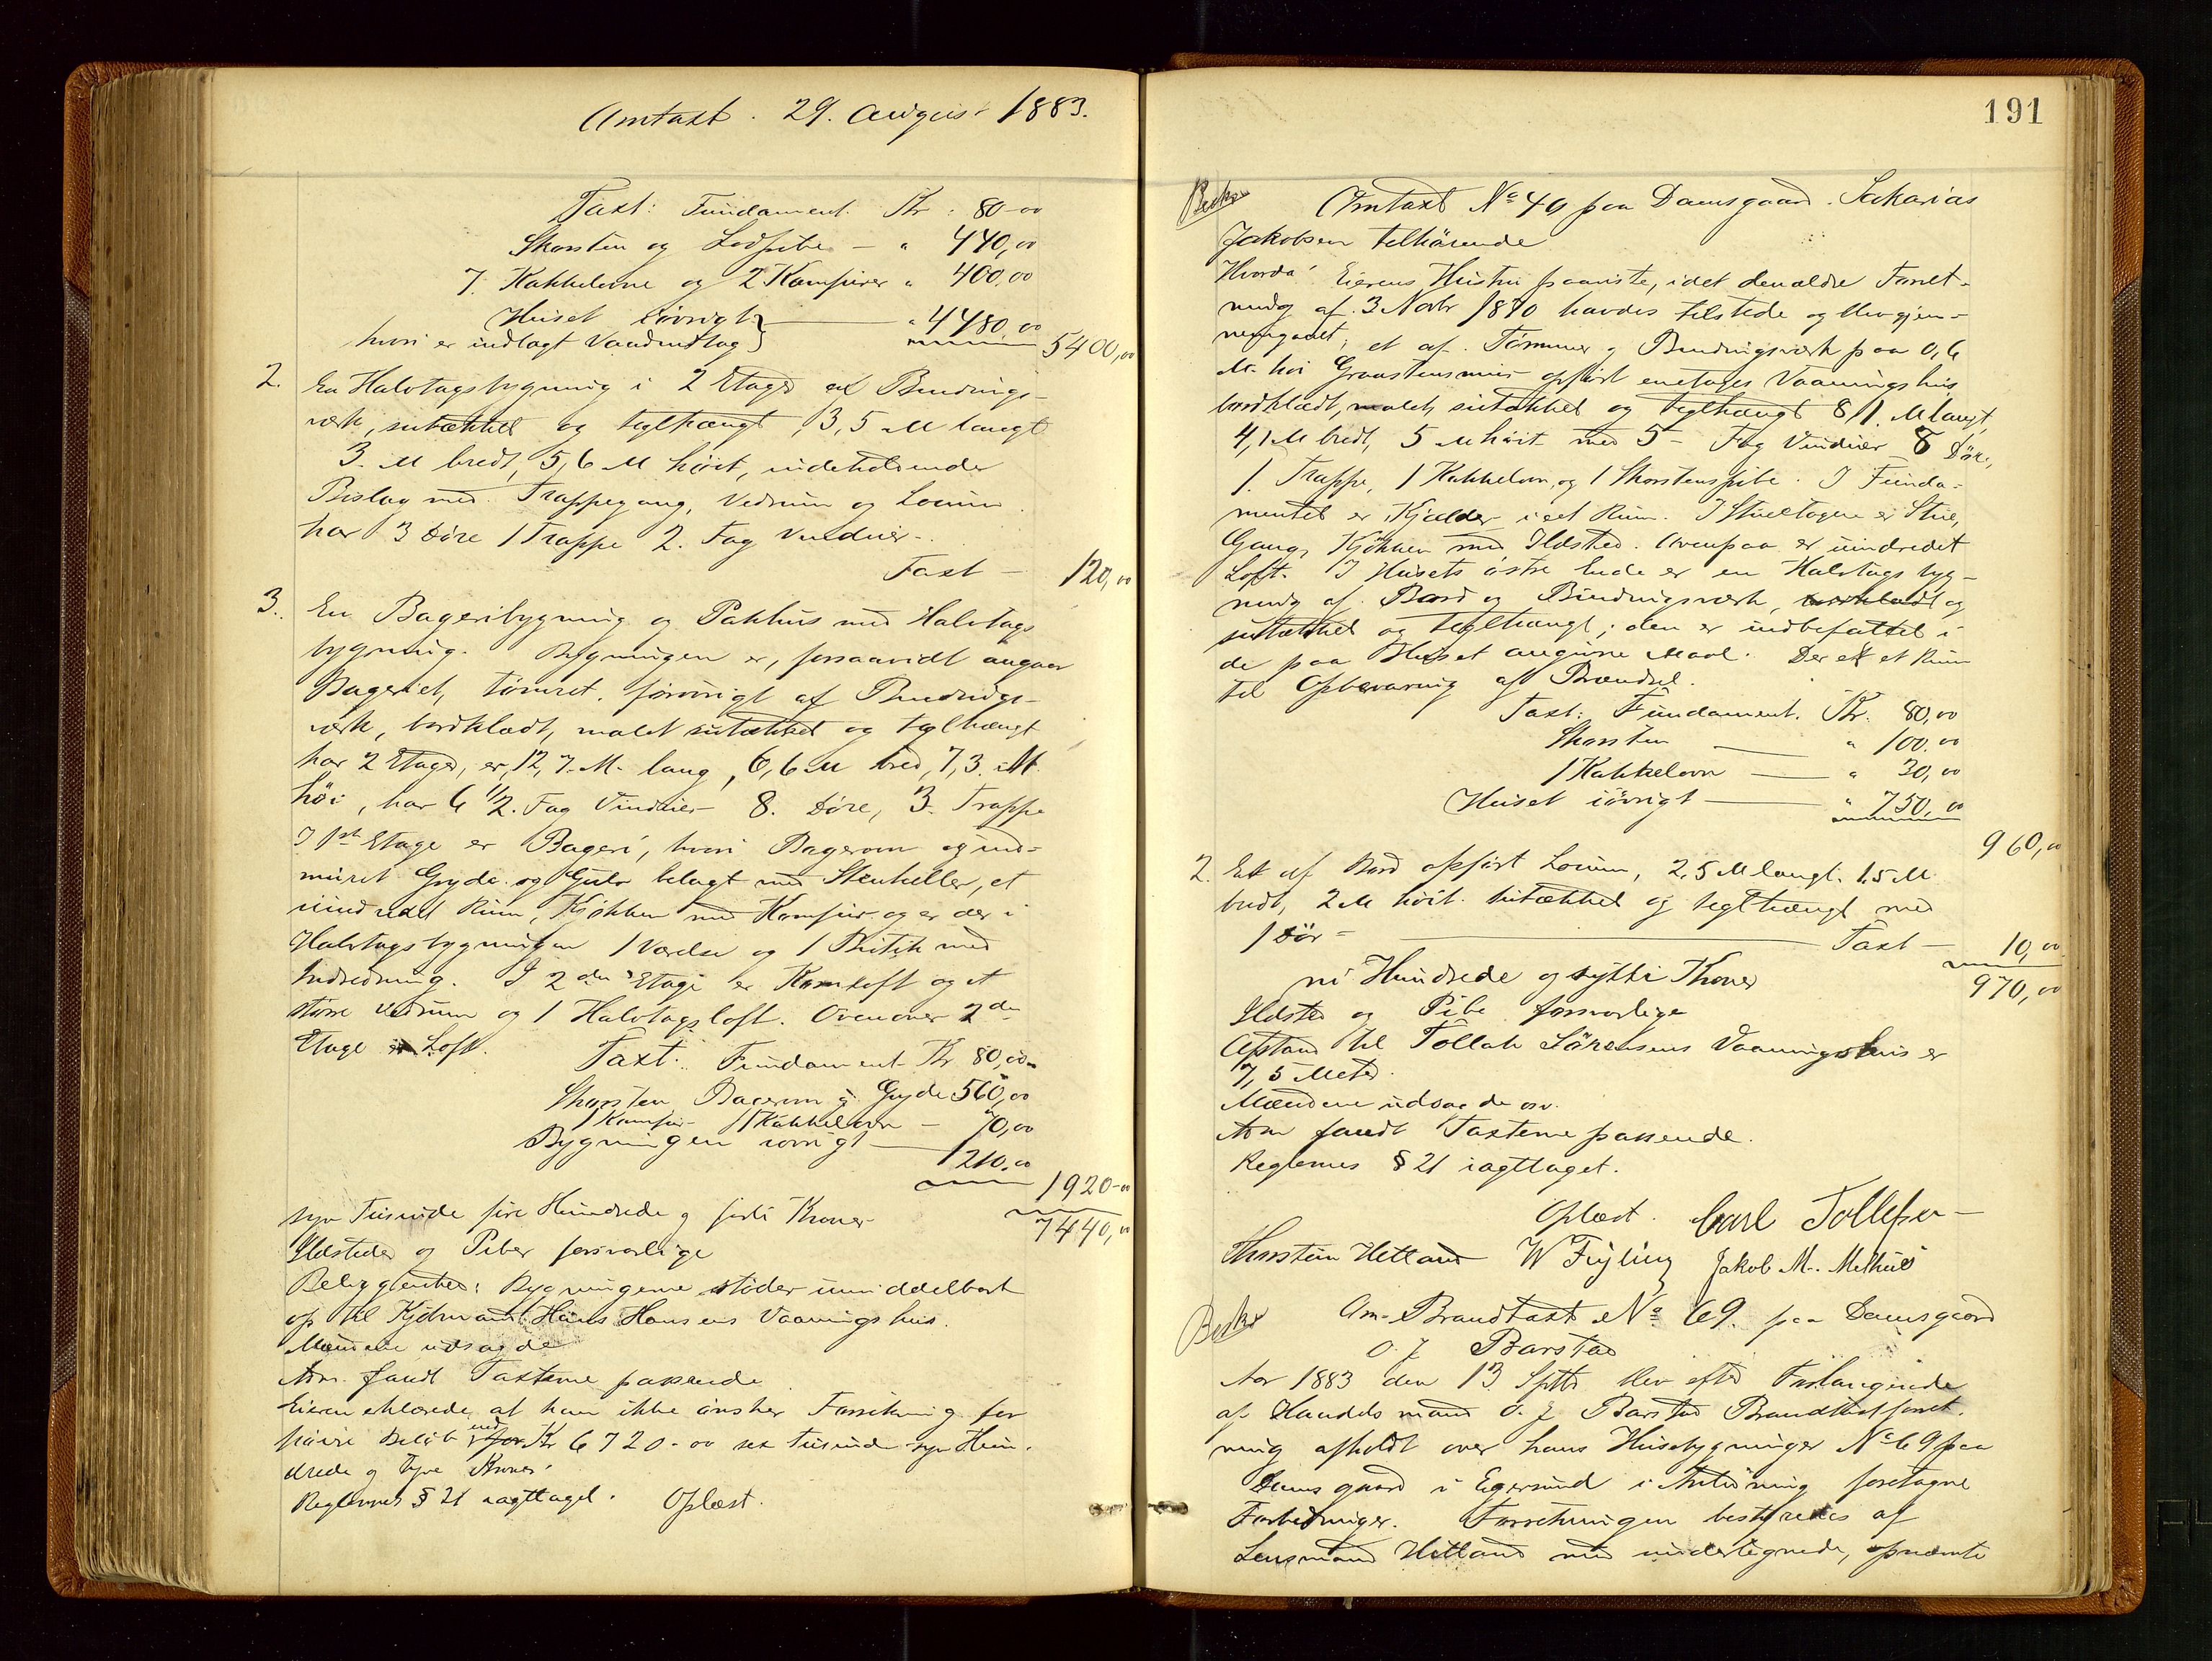 Omtaxt. 29. August 1883.
Taxt: Fundament. Kr. 80-00
Skorsten og Lodpibe - " 440,00
7. Kakkelovne og 2 Komfurer " 400,00
Huset iövrigt } " 4480,00
hvori er indlagt Vandindtag } 5400,00
2. En Halvtagsbygning i 2 Etager af Bindings-
værk, sutækket og teglhængt, 3,5 M langt
3. M bredt, 5,6 M höit, indeholdende
Bislag med Trappegang, Vedrum og Locum.
har 3 Döre 1 Trappe 2. Fag Vinduer.
Taxt - 120,00
3. En Bageribygning og Pakhus med Halvtags
bygning. Bygningen er, forsaavidt angaar
Bageriet, tömret, forövrigt af Bindings-
værk, bordklædt, malet sutækket og teglhængt
har 2 Etager, er 12,7. M. lang, 6,6 M bred, 7,3. M.
höi, har 6 1/2. Fag Vinduer 8. Döre, 3. Trappe
I 1ste Etage er Bageri, hvori Bagerovn og ind-
muret Gryde og Gulv belagt med Stenheller, et
uindredet Rum, Kjøkken med Komfur og er der i
Halvtagsbygningen 1 Værelse og 1 Butik med
Indredning. I 2den Etage er Kornloft og et
större Vedrum og 1 Halvtagsloft. Ovenover 2den
Etage er Loft. Taxt: Fundament Kr 80,00
Skorsten Bagerovn og Gryde 560,00
1 Komfur 1 Kakkelovn - 70,00
Bygningen iövrigt - 1210,00
1920-00
syv Tusinde fire Hundrede og førti Kroner 7440,00
Ildsteder og Piber forsvarlige
Beliggenhed: Bygningerne støder umiddelbart
op til Kjöbmand Hans Hansens Vaaningshus.
Mændene udsagde
Adm. fandt Taxterne passende
Eieren erklærede, at han ikke önsker Forsikring for
höiere Belöb end for Kr 6720-00 sex tusinde syv Hun-
drede og tyve Kroner.
Reglernes § 21 iagttaget. Oplæst.
191
Omtaxt No 40 paa Damsgaard. Sakarias
Jakobsen tilhörende
Hvorda Eierens Hustru paaviste, idet den ældre Forret-
ning af 3 Novbr 1870 havdes tilstede og blev gjen-
nemgaaet, et af Tömmer og Bindingsværk paa 0,6
M. höi Graastensmur opført enetages Vaaningshus
bordklædt, malet, sutækket og teglhængt 8,1. M langt,
4,1 M bredt, 5 M höit med 5 Fag Vinduer 8 Döre,
1. Trappe, 1 Kakkelovn, og 1 Skorstenspibe. I Funda-
mentet er Kjælder i et Rum. I Stueetagen er Stue,
Gang, Kjökken med Ildsted. Ovenpaa er uindredet
Loft. I Husets östre Ende er en Halvtagsbyg-
ning af Bord og Bindingsværk, bordklædt og
sutækket og teglhængt; den er indbefattet i
de paa Huset angivne Maal. Der er et Rum
til Opbevaring af Brændsel.
Taxt: Fundament. Kr. 80,00
Skorsten " 100,00
1 Kakkelovn " 30,00
Huset iövrigt " 750,00
960,00
2. Et af Bord opført Locum, 2,5 M langt. 1,5 M
bredt, 2 M höit. sutækket og teglhængt med
1 Dör - Taxt - 10,00
ni Hundrede og sytti Kroner 970,00
Ildsted og Pibe forsvarlige
Afstand til Tollak Sörensens Vaaningshus er
7,5 Meter.
Mændene udsagde osv.
Adm fandt Taxterne passende.
Reglernes § 21 iagttaget.
Oplæst. Carl Tollefsen
Thorstein Hetland W Feyling Jakob M. Melhus
Om-Brandtaxt No 69. paa Damsgaard
O. J Barstad
Aar 1883 den 13 Septbr blev efter Forlangende
af Handelsmand O. J Barstad Brandtaxtforret-
ning afholdt over hans Husebygninger No 69 paa
Damsgaard i Egersund i Anledning foretagne
Forbedringer. Forretningen bestyredes af
Lensmand Hetland med undertegnede, opnævnte